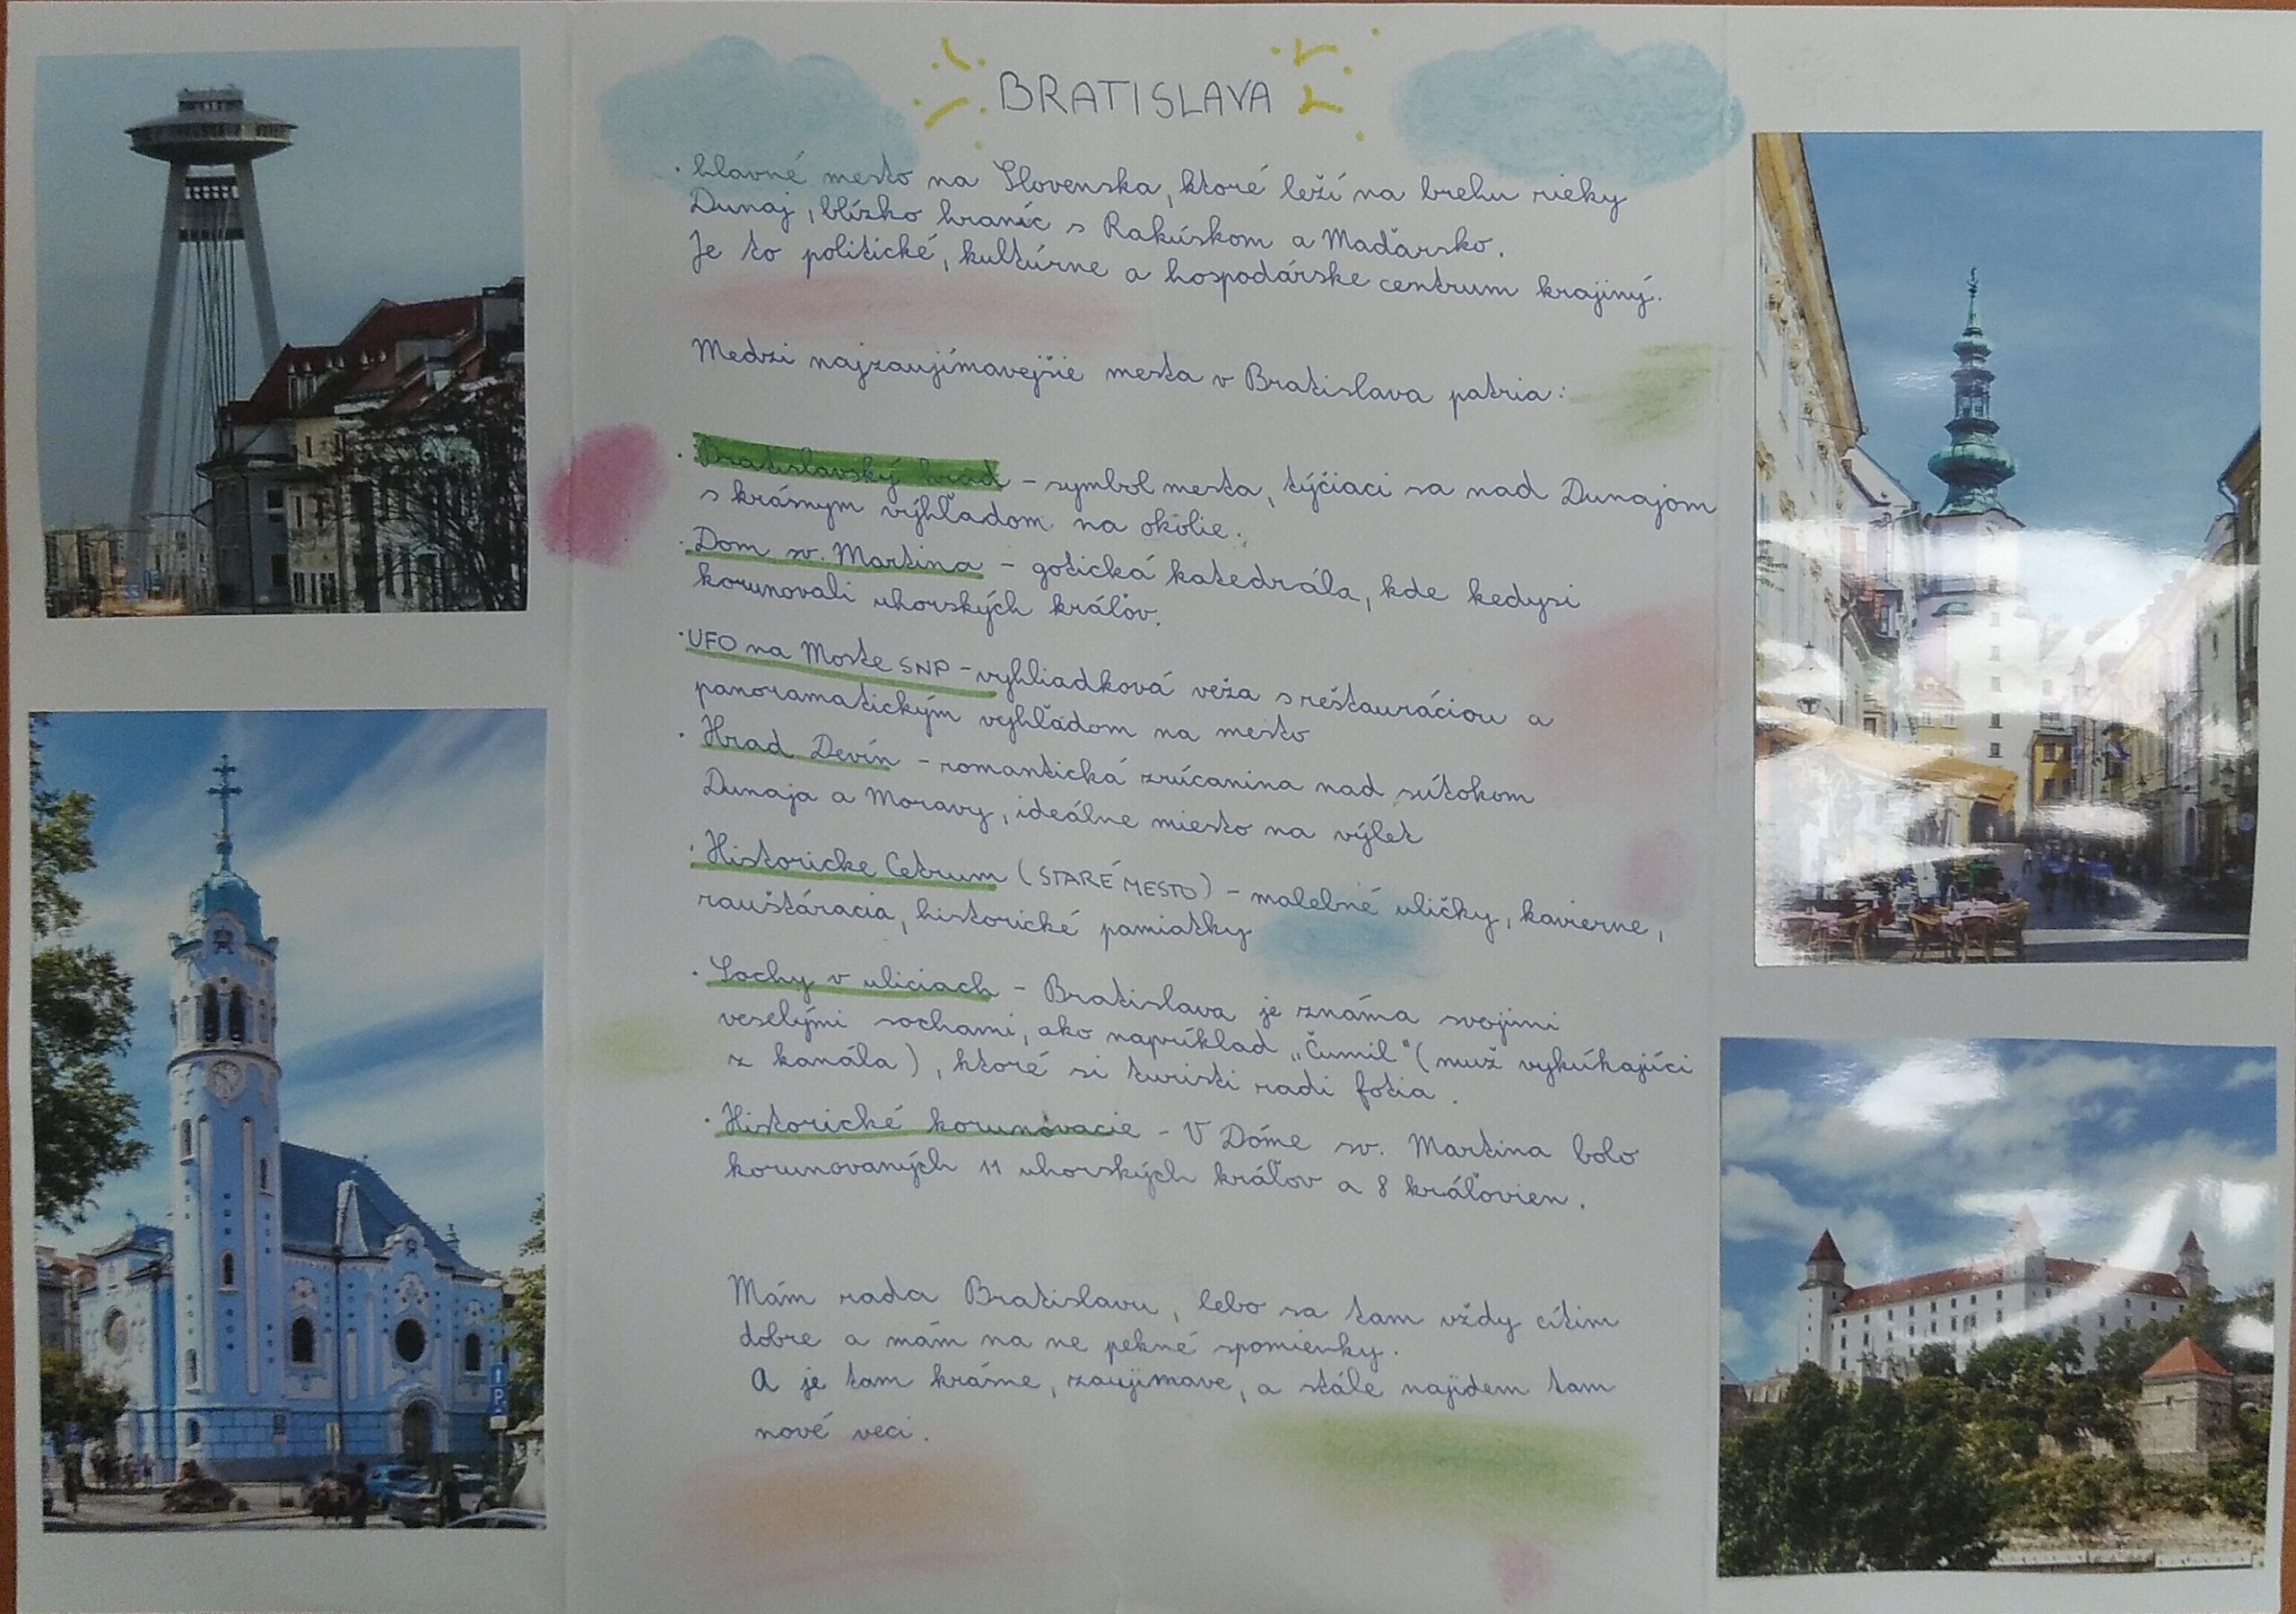 BRATISLAVA
· hlavné mesto na Slovenska, ktoré leží na brehu rieky
Dunaj, blízko hraníc s Rakúskom a Maďarsko.
Je to politické, kultúrne a hospodárske centrum krajiný.
Medzi najzaujímavejšie mesta v Bratislava patria:
· Bratislavský hrad – symbol mesta, týčiaci sa nad Dunajom
s krásnym výhľadom na okolie.
· Dom sv. Martina – gotická katedrála, kde kedysi
korunovali uhorských kráľov.
· UFO na Moste SNP – vyhliadková veža s reštauráciou a
panoramatickým vyhľadom na mesto
· Hrad Devín – romantická zrúcanina nad sútokom
Dunaja a Moravy, ideálne miesto na výlet
· Historicke Cetrum (STARÉ MESTO) – malebné uličky, kavierne,
rauštáracia, historické pamiatky
· Sochy v uliciach – Bratislava je známa svojimi
veselými sochami, ako napríklad „Čumil" (muž vykúkajúci
z kanála), ktoré si turisti radi fotia.
· Historické korunovacie – V Dóme sv. Martina bolo
korunovaných 11 uhorských kráľov a 8 kráľovien.
Mám rada Bratislavu, lebo sa tam vždy cítim
dobre a mám na ne pekné spomienky.
A je tam krásne, zaujimave, a stále najidem tam
nové veci.
P